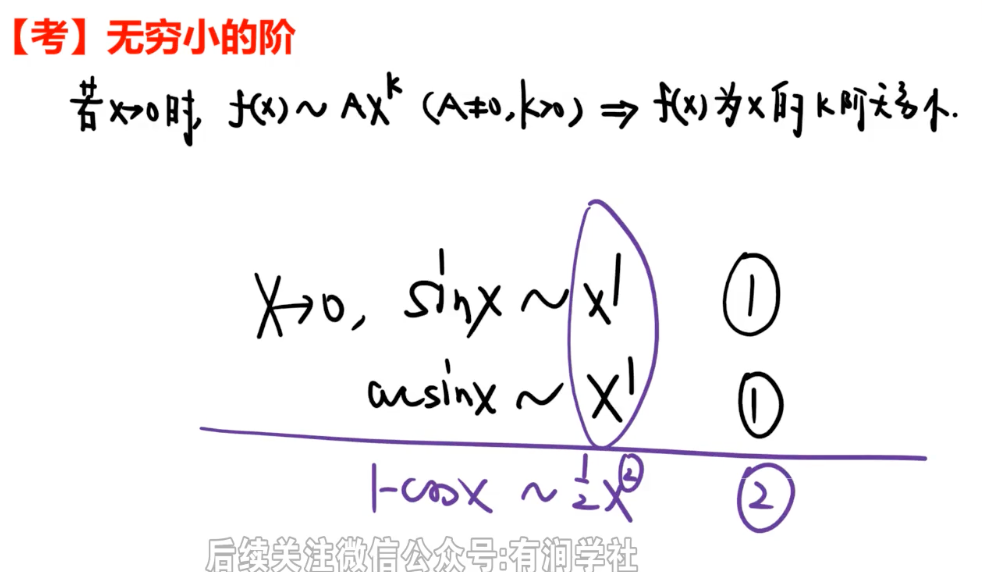 【考】无穷小的阶
若x→0时, f(x)~Ax^k (A≠0,k>0) ⇒ f(x)为x的k阶无穷小.
x→0, sinx ~ x^1 ①
arcsinx ~ x^1 ①
1-cosx ~ 1/2 x^② ②
后续关注微信公众号:有润学社